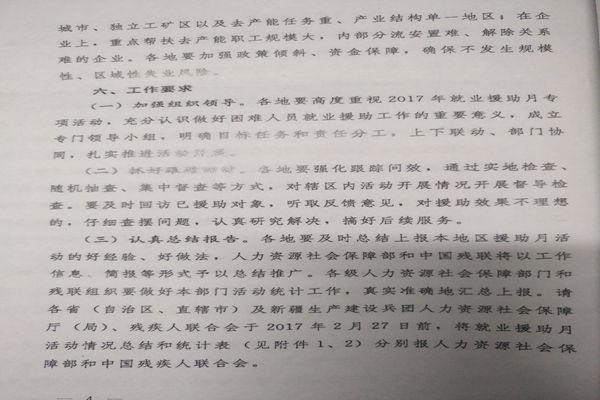 城市、独立工矿区以及去产能任务重、产业结构单一地区；在企
业上，重点帮扶去产能职工规模大，内部分流安置难、解除关系
难的企业。各地要加强政策倾斜、资金保障，确保不发生规模
性、区域性失业风险。
六、工作要求
（一）加强组织领导。各地要高度重视2017年就业援助月专
项活动，充分认识做好困难人员就业援助工作的重要意义，成立
专门领导小组，明确目标任务和责任分工，上下联动、部门协
同，扎实推进活动开展。
（二）抓好跟踪。各地要强化跟踪问效，通过实地检查、
随机抽查、集中督查等方式，对辖区内活动开展情况开展督导检
查。要及时回访已援助对象，听取反馈意见，对援助效果不理想
的，仔细查摆问题，认真研究解决，搞好后续服务。
（三）认真总结报告。各地要及时总结上报本地区援助月活
动的好经验、好做法，人力资源社会保障部和中国残联将以工作
信息、简报等形式予以总结推广。各级人力资源社会保障部门和
残联组织要做好本部门活动统计工作，真实准确地汇总上报。请
各省（自治区、直辖市）及新疆生产建设兵团人力资源社会保障
厅（局）、残疾人联合会于2017年2月27日前，将就业援助月
活动情况总结和统计表（见附件1、2）分别报人力资源社会保
障部和中国残疾人联合会。
— 4 —